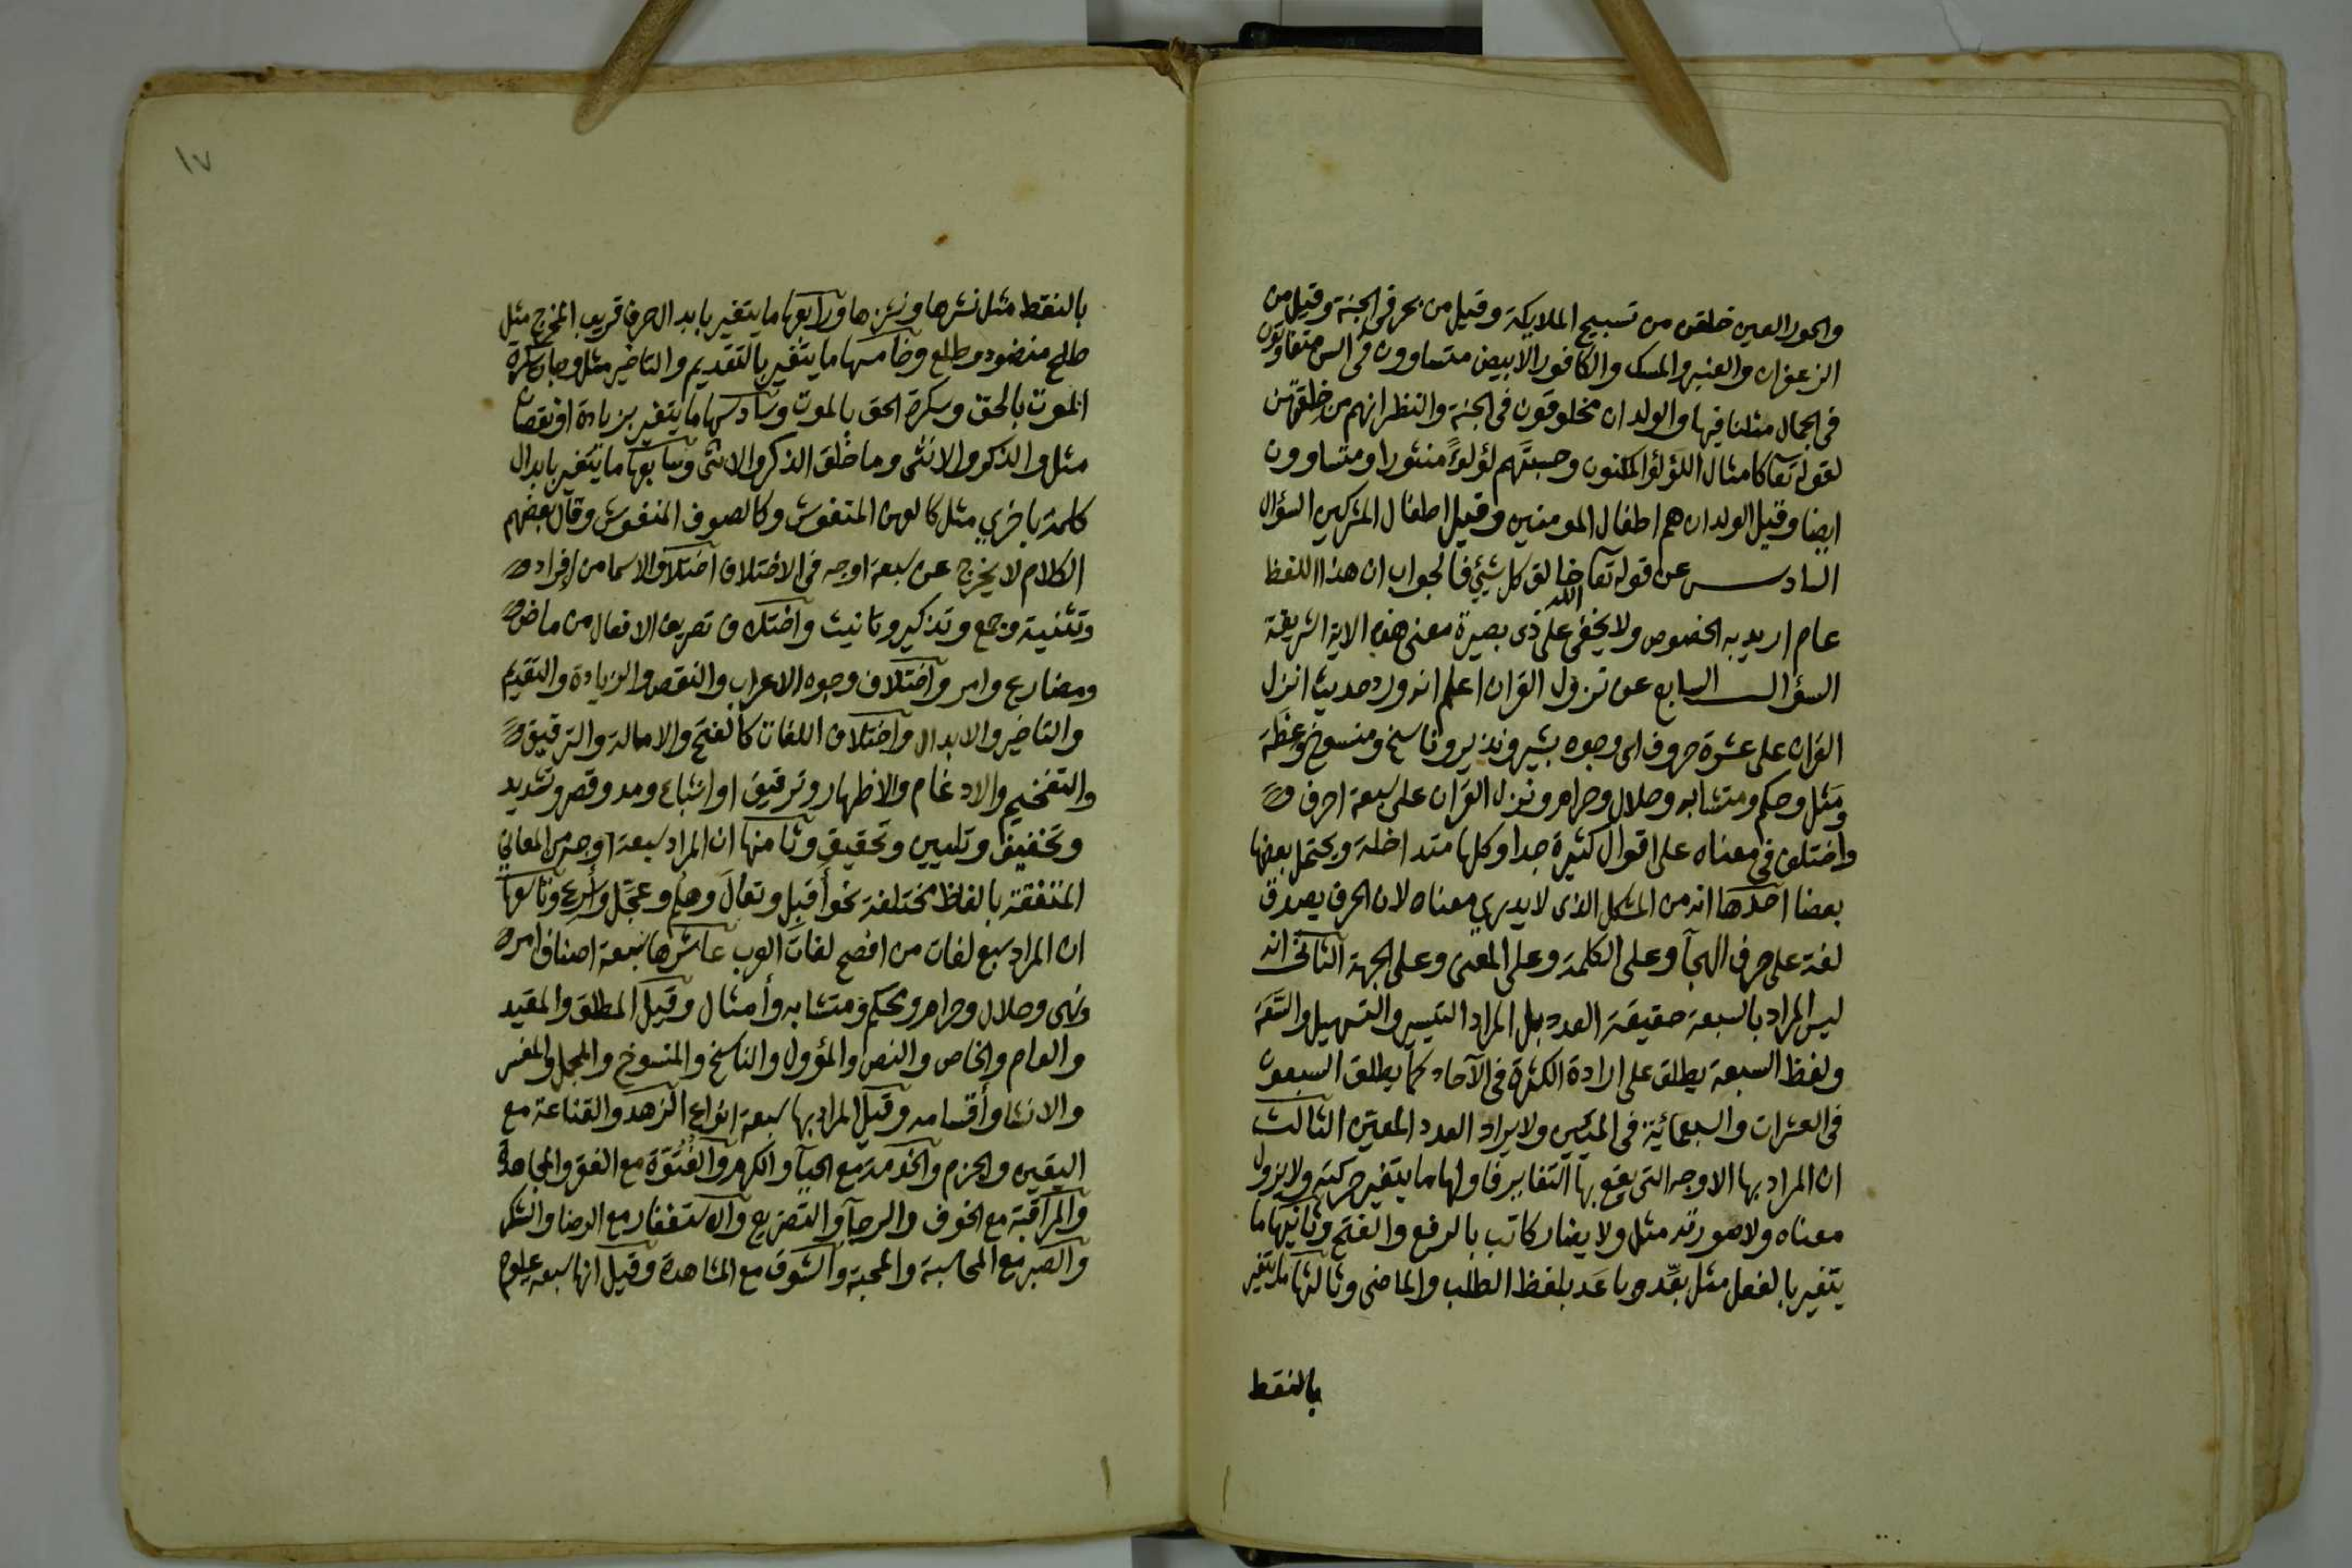 والحور العين خلقن من تسبيح الملايكة وقيل من بحر في الجنة وقيل من
الزعفران والعنبر والمسك والكافور الابيض متساوون في السن متفاوتون
في الجمال مثلنا فيها والولدان مخلوقون في الجنة والنظر انهم من خلقتهن
لقوله تعا كامثال اللؤلؤ المكنون وحسبتهم لؤلؤًا منثورا ومتساوون
ايضا وقيل الولدان هم اطفال المومنين وقيل اطفال المشركين السؤال
السادس عن قوله تعا الله خالق كل شيئ فالجواب ان هذا اللفظ
عام اريد به الخصوص ولا يخفى على ذى بصيرة معنى هذه الاية الشريفة
السؤال السابع عن نزول القران اعلم انه ورد حديث انزل
القران على عشرة حروف اى وجوه بشير ونذير وناسخ ومنسوخ وعظة
ومثل وحكم ومتشابه وحلال وحرام ونزل القران على سبعة احرف
واختلف في معناه على اقوال كثيرة جدا وكلها متداخلة ويحتمل بعضها
بعضا احدها انه من المشكل الذى لا يدري معناه لان الحرف يصدق
لغة على حرف الهجآ وعلى الكلمة وعلى المعنى وعلى الجهة الثانى انه
ليس المراد بالسبعة حقيقة العدد بل المراد التيسير والتسهيل والسّعَة
ولفظ السبعة يطلق على ارادة الكثرة في الآحاد كما يطلق السبعون
في العشرات والسبعمائية في المئين ولا يراد العدد المعين الثالث
ان المراد بها الاوجه التى يقع بها التغاير فاولها ما يتغير حركته ولا يزول
معناه ولا صورته مثل ولا يضار كاتب بالرفع والفتح وثانيها ما
يتغير بالفعل مثل بعِّد وباعَد بلفظ الطلب والماضى وثالثها ما يتغير
بالنقط
١٧
بالنقط مثل ننشرها وننشزها ورابعها ما يتغير بابدال حرف قريب المخرج مثل
طلح منضود وطلع وخامسها ما يتغير بالتقديم والتاخير مثل وجات سكرة
الموت بالحق وسكرة الحق بالموت وسادسها ما يتغير بزيادة او نقصان
مثل والذكر والانثى وما خلق الذكر والانثى وسابعها ما يتغير بابدال
كلمة باخري مثل كالعهن المنفوش وكالصوف المنفوش وقال بعضهم
الكلام لا يخرج عن سبعة اوجه في الاختلاف اختلاف الاسما من افراد
وتثنية وجمع وتذكير وتانيث واختلاف تصريف الافعال من ماض
ومضارع وامر واختلاف وجوه الاعراب والنقص والزيادة والتقديم
والتاخير والابدال واختلاف اللغات كالفتح والامالة والترقيق
والتفخيم والادغام والاظهار وترقيق او اشباع ومد وقصر وتشديد
وتخفيف وتليين وتحقيق وثامنها ان المراد سبعة اوجه من المعاني
المتفقة بالفاظ مختلفة نحو أقبِل وتعالَ وهلم وعجِّل وأسرع وتاسعها
ان المراد سبع لغات من افصح لغات العرب عاشرها سبعة اصناف امر
ونهى وحلال وحرام ومحكم ومتشابه وأمثال وقيل المطلق والمقيد
والعام والخاص والنص والمؤول والناسخ والمنسوخ والمجمل والمفسر
والانشا وأقسامه وقيل المراد بها سبعة انواع الزهد والقناعة مع
اليقين والحزم والخدمة مع الحيآ والكرم والفُتُوّة مع الفقر والمجاهدة
والمراقبة مع الخوف والرجآ والتضرع والاستغفار مع الرضا والشكر
والصبر مع المحاسبة والمحبة والشوق مع المشاهدة وقيل انها سبعة علوم